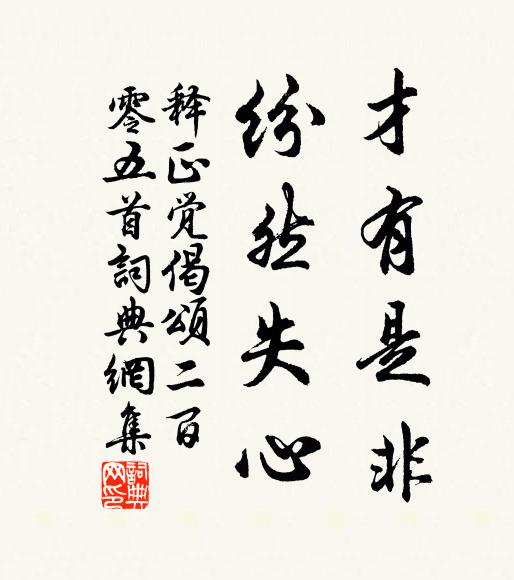 才有是非
纷然失心
释正觉偈頌二百
零五首詞典網集
詞典網印